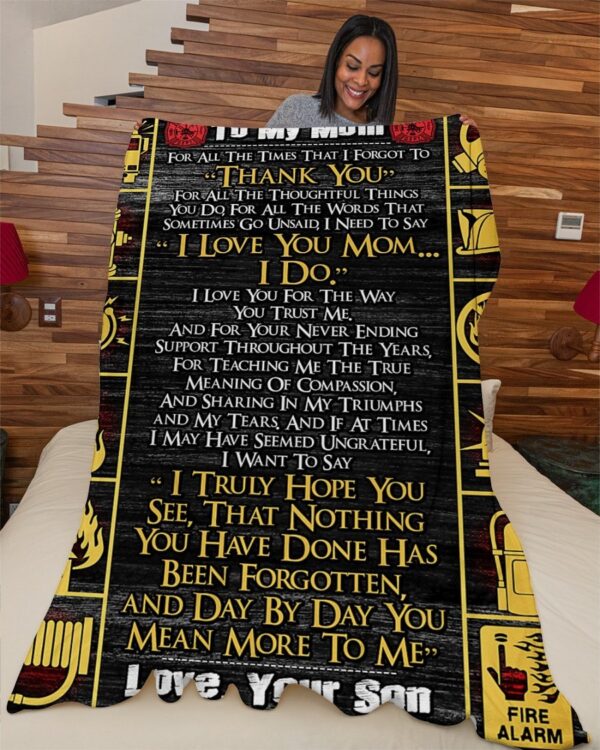 To My Mom
For All The Times That I Forgot To
“Thank You”
For All The Thoughtful Things
You Do, For All The Words That
Sometimes Go Unsaid, I Need To Say
“ I Love You Mom...
I Do.”
I Love You For The Way
You Trust Me,
And For Your Never Ending
Support Throughout The Years,
For Teaching Me The True
Meaning Of Compassion,
And Sharing In My Triumphs
and My Tears, And If At Times
I May Have Seemed Ungrateful,
I Want To Say
“ I Truly Hope You
See, That Nothing
You Have Done Has
Been Forgotten,
and Day By Day You
Mean More To Me”
Love, Your Son
FIRE
ALARM